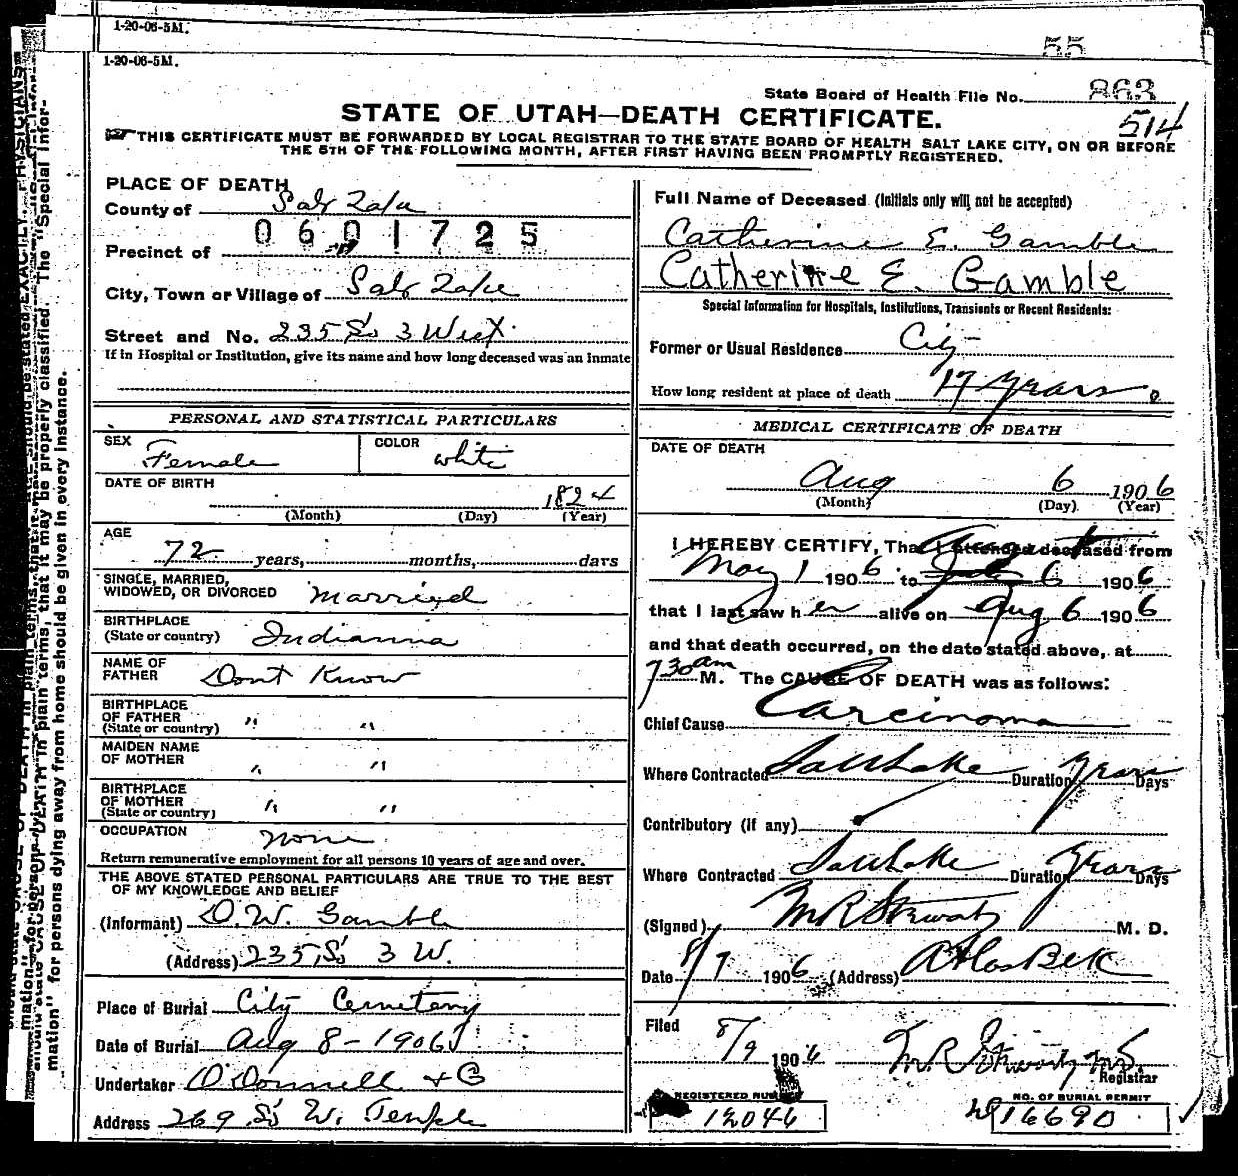 1-20-06-5M.
1-20-06-5M.
55
State Board of Health File No. 863
514
STATE OF UTAH—DEATH CERTIFICATE.
THIS CERTIFICATE MUST BE FORWARDED BY LOCAL REGISTRAR TO THE STATE BOARD OF HEALTH SALT LAKE CITY, ON OR BEFORE
THE 5TH OF THE FOLLOWING MONTH, AFTER FIRST HAVING BEEN PROMPTLY REGISTERED.
PLACE OF DEATH
County of Salt Lake
0601725
Precinct of
City, Town or Village of Salt Lake
Street and No. 235 So 3 West
If in Hospital or Institution, give its name and how long deceased was an inmate
PERSONAL AND STATISTICAL PARTICULARS
SEX Female COLOR white
DATE OF BIRTH 1824
(Month) (Day) (Year)
AGE
72 years, months, days
SINGLE, MARRIED,
WIDOWED, OR DIVORCED Married
BIRTHPLACE
(State or country) Indianna
NAME OF
FATHER Dont Know
BIRTHPLACE
OF FATHER
(State or country) " "
MAIDEN NAME
OF MOTHER " "
BIRTHPLACE
OF MOTHER
(State or country) " "
OCCUPATION none
Return remunerative employment for all persons 10 years of age and over.
THE ABOVE STATED PERSONAL PARTICULARS ARE TRUE TO THE BEST
OF MY KNOWLEDGE AND BELIEF
(Informant) O.W. Gamble
(Address) 235 So 3 W.
Place of Burial City Cemetery
Date of Burial Aug 8-1906
Undertaker O'Donnell & Co
Address 269 So W. Temple
Full Name of Deceased (Initials only will not be accepted)
Catherine E. Gamble
Catherine E. Gamble
Special Information for Hospitals, Institutions, Transients or Recent Residents:
Former or Usual Residence City
How long resident at place of death 17 years.
MEDICAL CERTIFICATE OF DEATH
DATE OF DEATH
Aug 6 1906
(Month) (Day) (Year)
I HEREBY CERTIFY, That I attended deceased from
May 1 1906 to Aug 6 1906
that I last saw her alive on Aug 6 1906
and that death occurred, on the date stated above, at
7 30 am M. The CAUSE OF DEATH was as follows:
Chief Cause Carcinoma
Where Contracted Salt Lake Duration Years Days
Contributory (if any)
Where Contracted Salt Lake Duration Years Days
(Signed) M R Stewart M. D.
Date 8/7 1906 (Address) Atlas Blk
Filed 8/9 1906 M. R. Stewart
Registrar
REGISTERED NUMBER
12046
NO. OF BURIAL PERMIT
16690
mation" for persons dying away from home should be given in every instance.